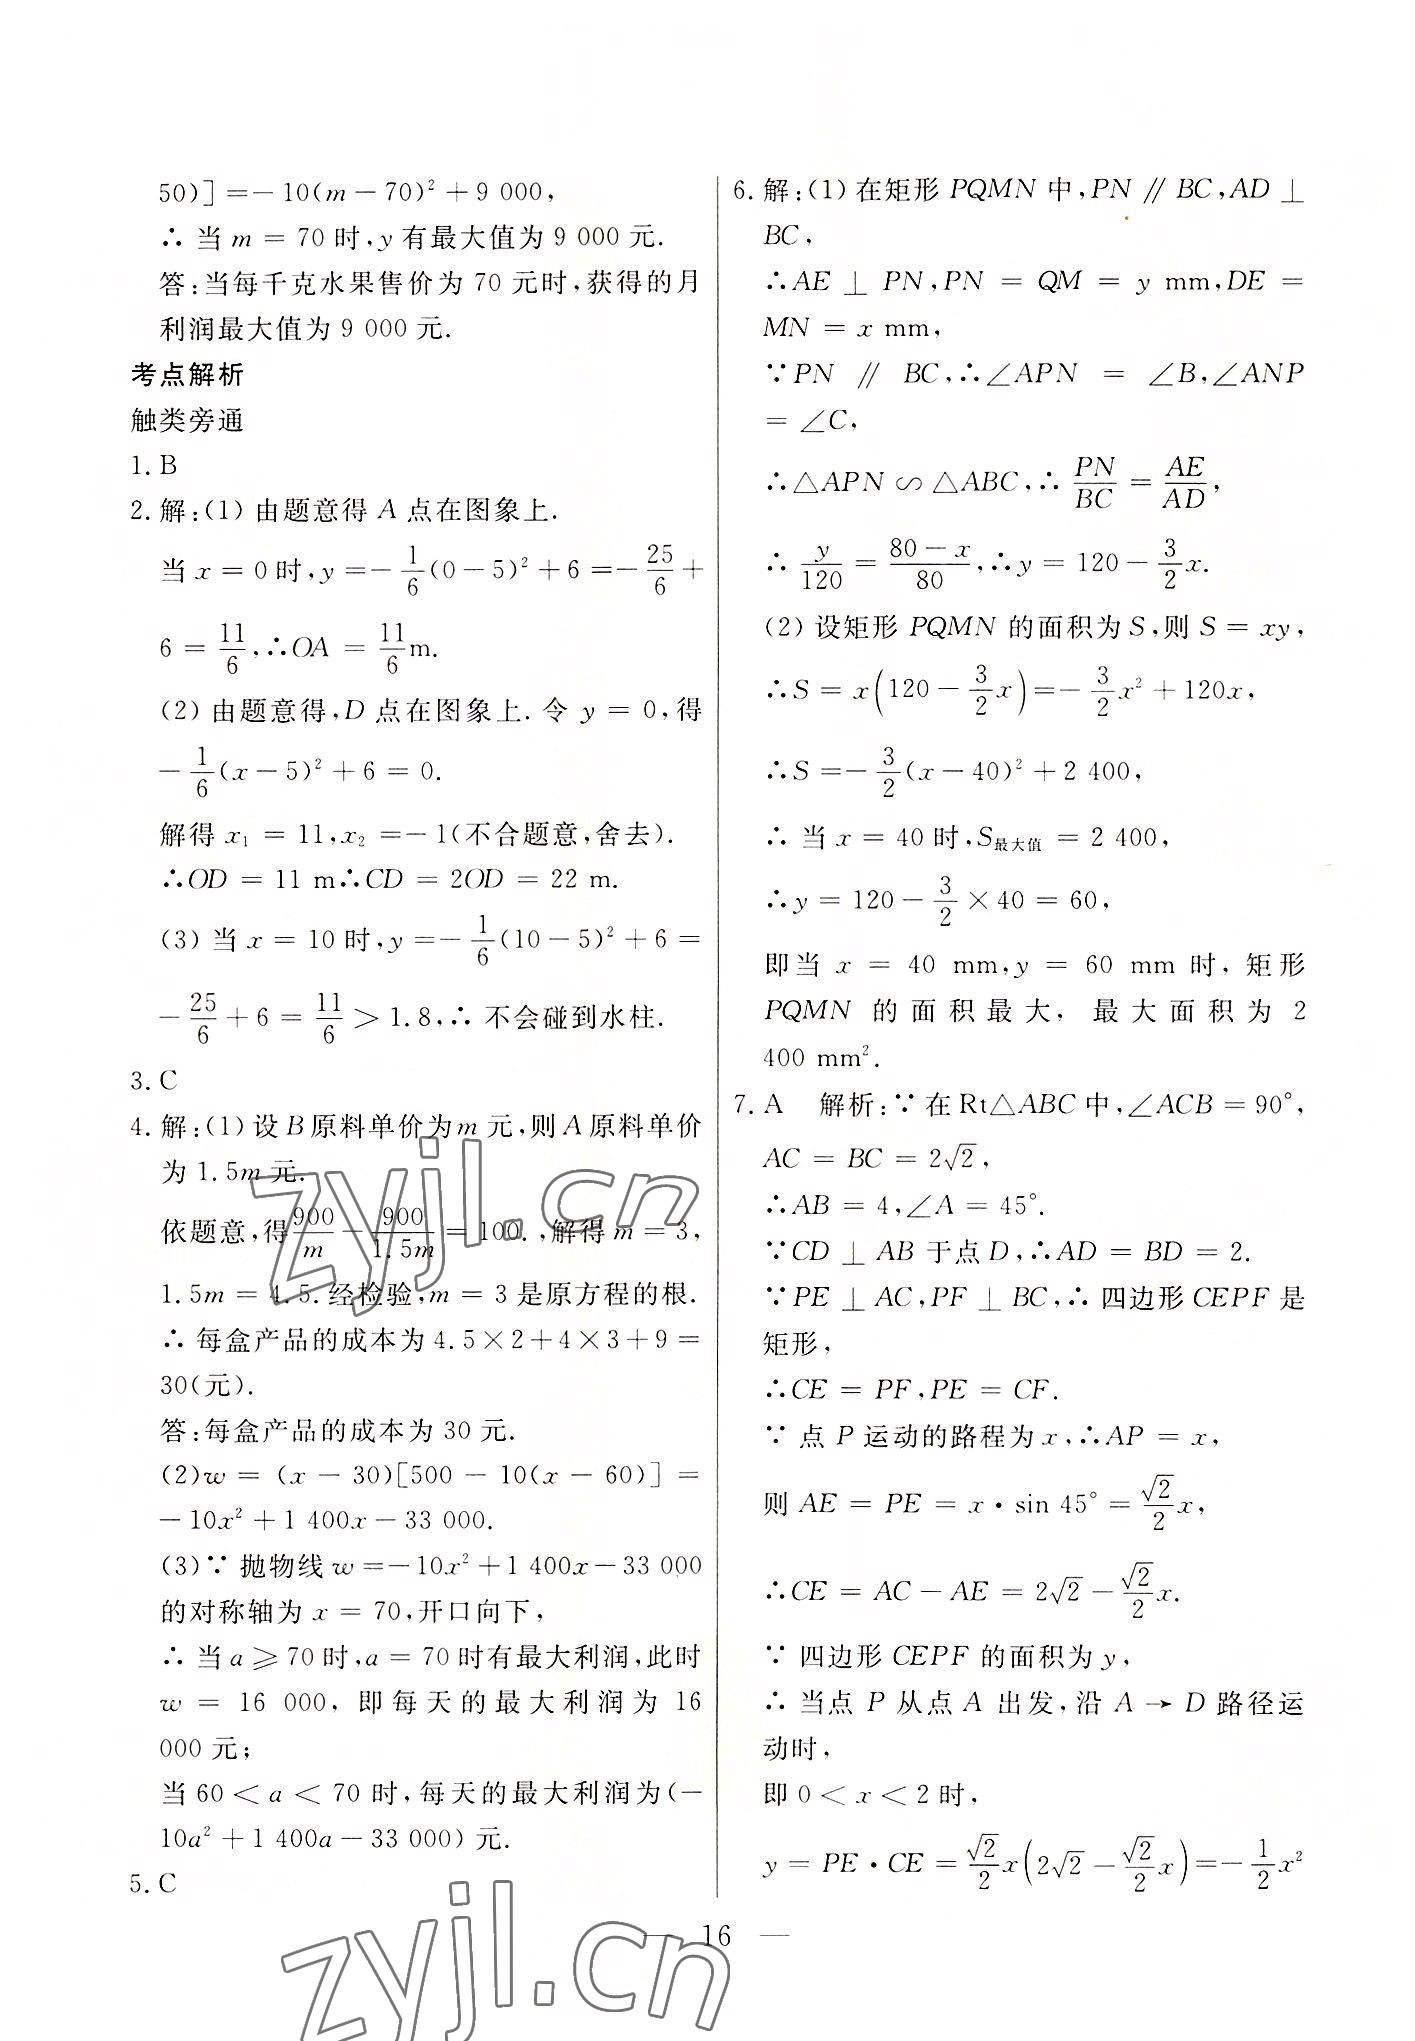 50)]=-10(m-70)²+9 000,
∴ 当 m = 70 时,y 有最大值为 9 000 元.
答:当每千克水果售价为 70 元时,获得的月
利润最大值为 9 000 元.
考点解析
触类旁通
1. B
2. 解:(1) 由题意得 A 点在图象上.
当 x = 0 时,y =-1/6(0-5)²+6 =-25/6+
6 = 11/6,∴OA = 11/6 m.
(2) 由题意得,D 点在图象上. 令 y = 0,得
-1/6(x-5)²+6 = 0.
解得 x₁ = 11,x₂ =-1(不合题意,舍去).
∴OD = 11 m∴CD = 2OD = 22 m.
(3) 当 x = 10 时,y =-1/6(10-5)²+6 =
-25/6+6 = 11/6 > 1.8,∴ 不会碰到水柱.
3. C
4. 解:(1) 设 B 原料单价为 m 元,则 A 原料单价
为 1.5m 元.
依题意,得 900/m - 900/1.5m = 100. ,解得 m = 3,
1.5m = 4.5. 经检验,m = 3 是原方程的根.
∴ 每盒产品的成本为 4.5×2+4×3+9 =
30(元).
答:每盒产品的成本为 30 元.
(2)w = (x-30)[500-10(x-60)] =
-10x²+1 400x-33 000.
(3)∵ 抛物线 w =-10x²+1 400x-33 000
的对称轴为 x = 70,开口向下,
∴ 当 a ⩾ 70 时,a = 70 时有最大利润,此时
w = 16 000, 即每天的最大利润为 16
000 元;
当 60 < a < 70 时,每天的最大利润为(-
10a²+1 400a-33 000) 元.
5. C
6. 解:(1) 在矩形 PQMN 中,PN ∥ BC,AD ⊥
BC,
∴AE ⊥ PN,PN = QM = y mm,DE =
MN = x mm,
∵PN ∥ BC,∴∠APN = ∠B,∠ANP
= ∠C,
∴△APN ∽ △ABC,∴ PN/BC = AE/AD,
∴ y/120 = (80-x)/80,∴y = 120-3/2x.
(2) 设矩形 PQMN 的面积为 S,则 S = xy,
∴S = x(120-3/2x)=-3/2x²+120x,
∴S =-3/2(x-40)²+2 400,
∴ 当 x = 40 时,S最大值 = 2 400,
∴y = 120-3/2×40 = 60,
即当 x = 40 mm,y = 60 mm 时, 矩形
PQMN 的面积最大, 最大面积为 2
400 mm².
7. A 解析:∵ 在 Rt△ABC 中,∠ACB = 90°,
AC = BC = 2√2,
∴AB = 4,∠A = 45°.
∵CD ⊥ AB 于点 D,∴AD = BD = 2.
∵PE ⊥ AC,PF ⊥ BC,∴ 四边形 CEPF 是
矩形,
∴CE = PF,PE = CF.
∵ 点 P 运动的路程为 x,∴AP = x,
则 AE = PE = x·sin 45° = √2/2x,
∴CE = AC-AE = 2√2-√2/2x.
∵ 四边形 CEPF 的面积为 y,
∴ 当点 P 从点 A 出发,沿 A → D 路径运
动时,
即 0 < x < 2 时,
y = PE·CE = √2/2x(2√2-√2/2x)=-1/2x²
— 16 —
zyjl.cn
zyjl.cn